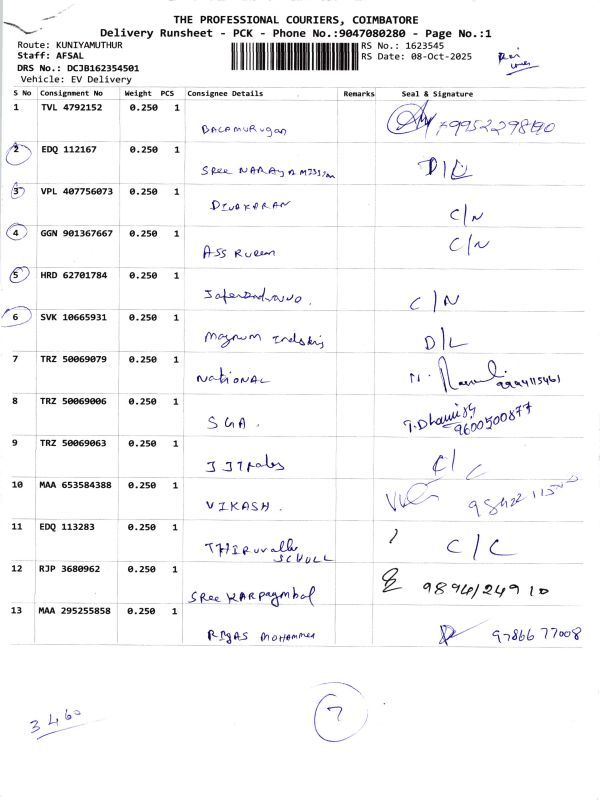 THE PROFESSIONAL COURIERS, COIMBATORE
Delivery Runsheet - PCK - Phone No.:9047080280 - Page No.:1
Route: KUNIYAMUTHUR
RS No.: 1623545
Staff: AFSAL
RS Date: 08-Oct-2025
DRS No.: DCJB162354501
Vehicle: EV Delivery
S No Consignment No Weight PCS Consignee Details Remarks Seal & Signature
1 TVL 4792152 0.250 1 BALAMURUGAN
2 EDQ 112167 0.250 1 SREE D/L
3 VPL 407756073 0.250 1 DIVAKARAN C/N
4 GGN 901367667 0.250 1 ASS C/N
5 HRD 62701784 0.250 1 C/N
6 SVK 10665931 0.250 1 Magnum D/L
7 TRZ 50069079 0.250 1 NATIONAL 9994115461
8 TRZ 50069006 0.250 1 SGA. 9600500877
9 TRZ 50069063 0.250 1 C/C
10 MAA 653584388 0.250 1 VIKASH.
11 EDQ 113283 0.250 1 C/C
12 RJP 3680962 0.250 1 SREE KARPAGMBAL 9894124910
13 MAA 295255858 0.250 1 RIJAS MOHAMMED 9786677008
3460
7